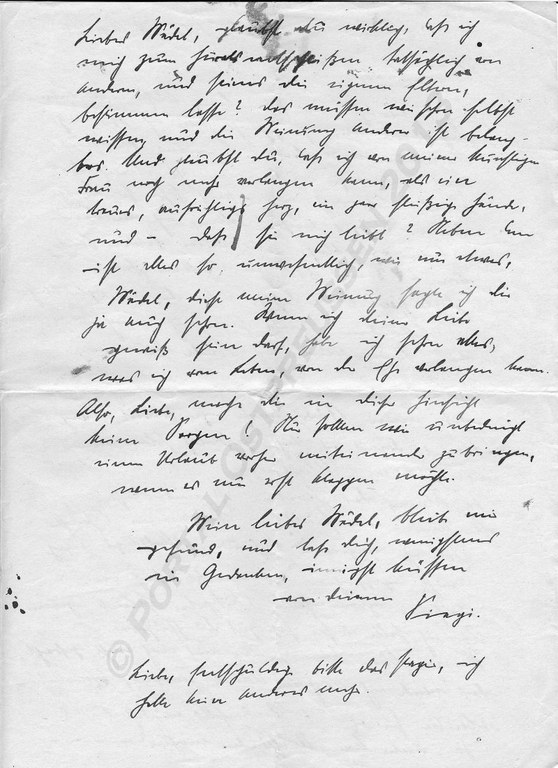 Liebes Mädel, glaubst du wirklich, daß ich
mich zum Heiratsentschließen tatsächlich von
anderen, und seiens die eigenen Eltern,
bestimmen lasse? Das müssen wir schon selbst
wissen, und die Meinung anderer ist belang-
los. Und glaubst du, daß ich von meiner künftigen
Frau noch mehr verlangen kann, als ein
treues, aufrichtiges Herz, ein paar fleißige Hände,
und – daß sie mich liebt? Neben dem
ist alles so unwesentlich, wie nur etwas,
Mädel, diese meine Meinung sagte ich dir
ja auch schon. Wenn ich deine Liebe
gewiß sein darf, habe ich schon alles,
was ich vom Leben, von der Ehe verlangen kann.
Also, Liebe, mache dir in dieser Hinsicht
keine Sorgen! Nur sollten wir unbedingt
einen Urlaub vorher miteinander zubringen,
wenn es nur erst klappen möchte.
Mein liebes Mädel, bleib mir
gesund, und laß dich, wenigstens
in Gedanken, innigst küssen
von deinem
Liebe, entschuldige bitte das Papier, ich
hatte kein anderes mehr.
© PORTAL-OSTPREUSSEN